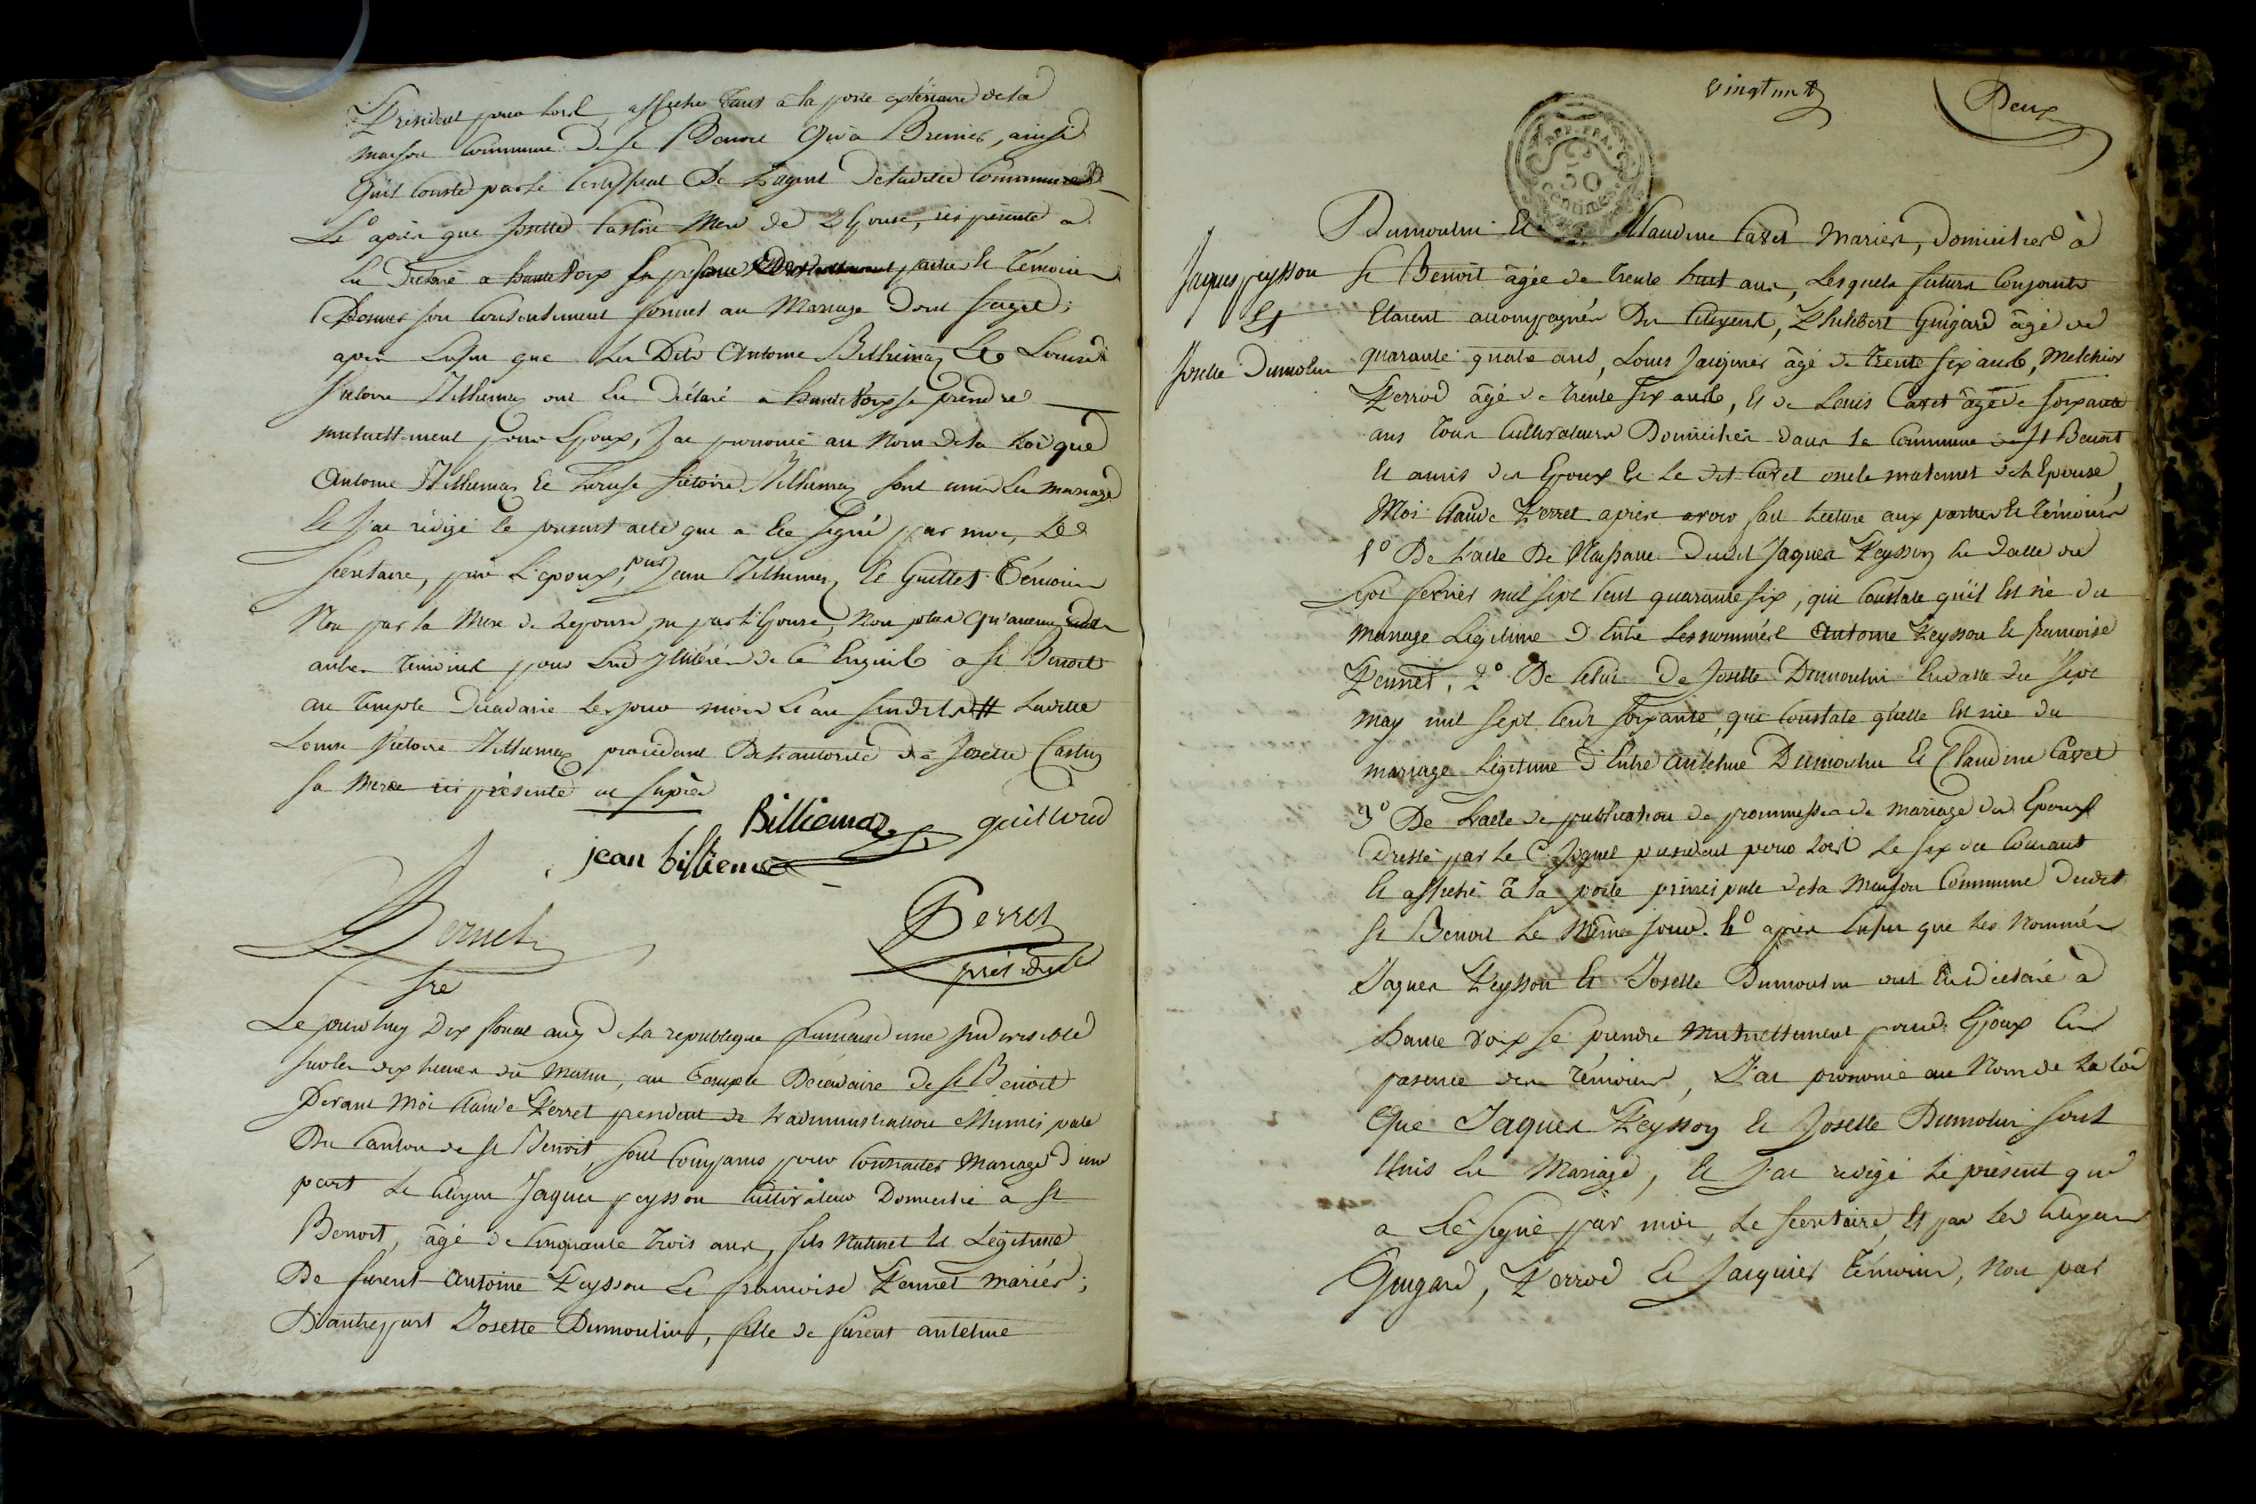 Président pour lors, affiché tant à la porte extérieure de la
maison Commune de St Benoit qu'a Brenier, ainsi
Qu'il Conste par le Certificat De L'agent Deladitte Commune
4° après que Josette Castin Mere de L'Epouse, ici présente a
En Déclaré a haute voix En présence Des parties et Témoins
Donner son Consentement formel au Mariage Dont sagit;
après Enfin que Les Dits Antoine Billiemaz et Louise
Victoire Billiemaz ont En Déclaré a haute voix se prendre
mutuellement pour Epoux, J'ai prononcé au Nom de la Loi que
Antoine Billiemaz et Victoire Billiemaz sont unis En mariage
Et J'ai rédigé le present acte que a été signé par moi, Le
Secretaire, par L'epoux, par Jean Billiemaz, et Guilland Témoins
Non par la Mere de Lepouse ni par L'Epouse, Non plus qu'aucun des
autres Temoins pour End Illitérés de Ce Enquis a St Benoit
au Temple Décadaire Les jour mois et an susdits Laditte
Louise Victoire Billiemaz procédant De L'autorité de Josette Castin
Sa Mere ici présente au susprès
Billiemaz guilland
jean billiemaz
Bornet
Perret
président
Sre
Le jourdhuy Dix floréal an 7 de la republique francaise une Indivisible
sur les dix heures du Matin, au Temple Décadaire de St Benoit
Devant Moi Claude Perret president de L'administration Municipale
Du Canton de St Benoit sont Comparus pour Contracter Mariage D'une
part Le Citoyen Jaques peysson Cultivateur Domicilié à St
Benoit, âgé de Cinquante trois ans, fils Naturel et Légitime
De furent Antoine Peysson et francoise Pennet mariés;
D'autrepart Josette Dumoulin, fille de furent antelme
vingt un
Deux
REP. FRA.
50
centimes
Jaques peysson
Et
Josette Dumolin
Dumoulin Et Claudine Cavet Mariés, Domiciliée à
St Benoit âgée de Trente huit ans, Lesquels futurs Conjoints
Etaient accompagnés Du Citoyens, Philibert Guigard âgé de
quarante quatre ans, Louis Jacquier âgé de Trente six ans, Melchior
Perrod âgé de Trente six ans, et de Louis Cavet âgé de soixante
ans Tous Cultivateurs Domiciliés dans la Commune de St Benoit
et amis des Epoux et Le dit Cavet oncle maternel de L'Epouse,
Moi Claude Perret après avoir fait Lecture aux parties et Témoins
1° De L'acte De Naissance Dudit Jaques Peysson En datte du
Sept fevrier mil sept Cent quarante six, qui Constate qu'il Est né du
mariage Légitime D'Entre Les nommés Antoine Peysson et francoise
Pennet, 2° De Celui De Josette Dumoulin Endatte du sept
may mil sept Cent soixante, que Constate qu'elle Est née du
mariage Légitime D'Entre Antelme Dumoulin et Claudine Cavet
3° De L'acte de publication de promesses de mariage des Epoux
Dressé par Le C. Joguet président pour Lors Le six du Courant
Et affiché à la porte principale de la Maison Commune Dudit
St Benoit Le Même Jour. 4° après Enfin que Les Nommés
Jaques Peysson Et Josette Dumoulin ont En déclaré à
haute voix se prendre Mutuellement pour Epoux En
présence des Témoins, J'ai prononcé au Nom de La Loi
Que Jaques Peysson et Josette Dumolin sont
Unis En Mariage, et J'ai rédigé Le présent que
a été signé par moi, Le Secretaire, et par Les Citoyens
Guigard, Perrod et Jacquier Témoins, Non par